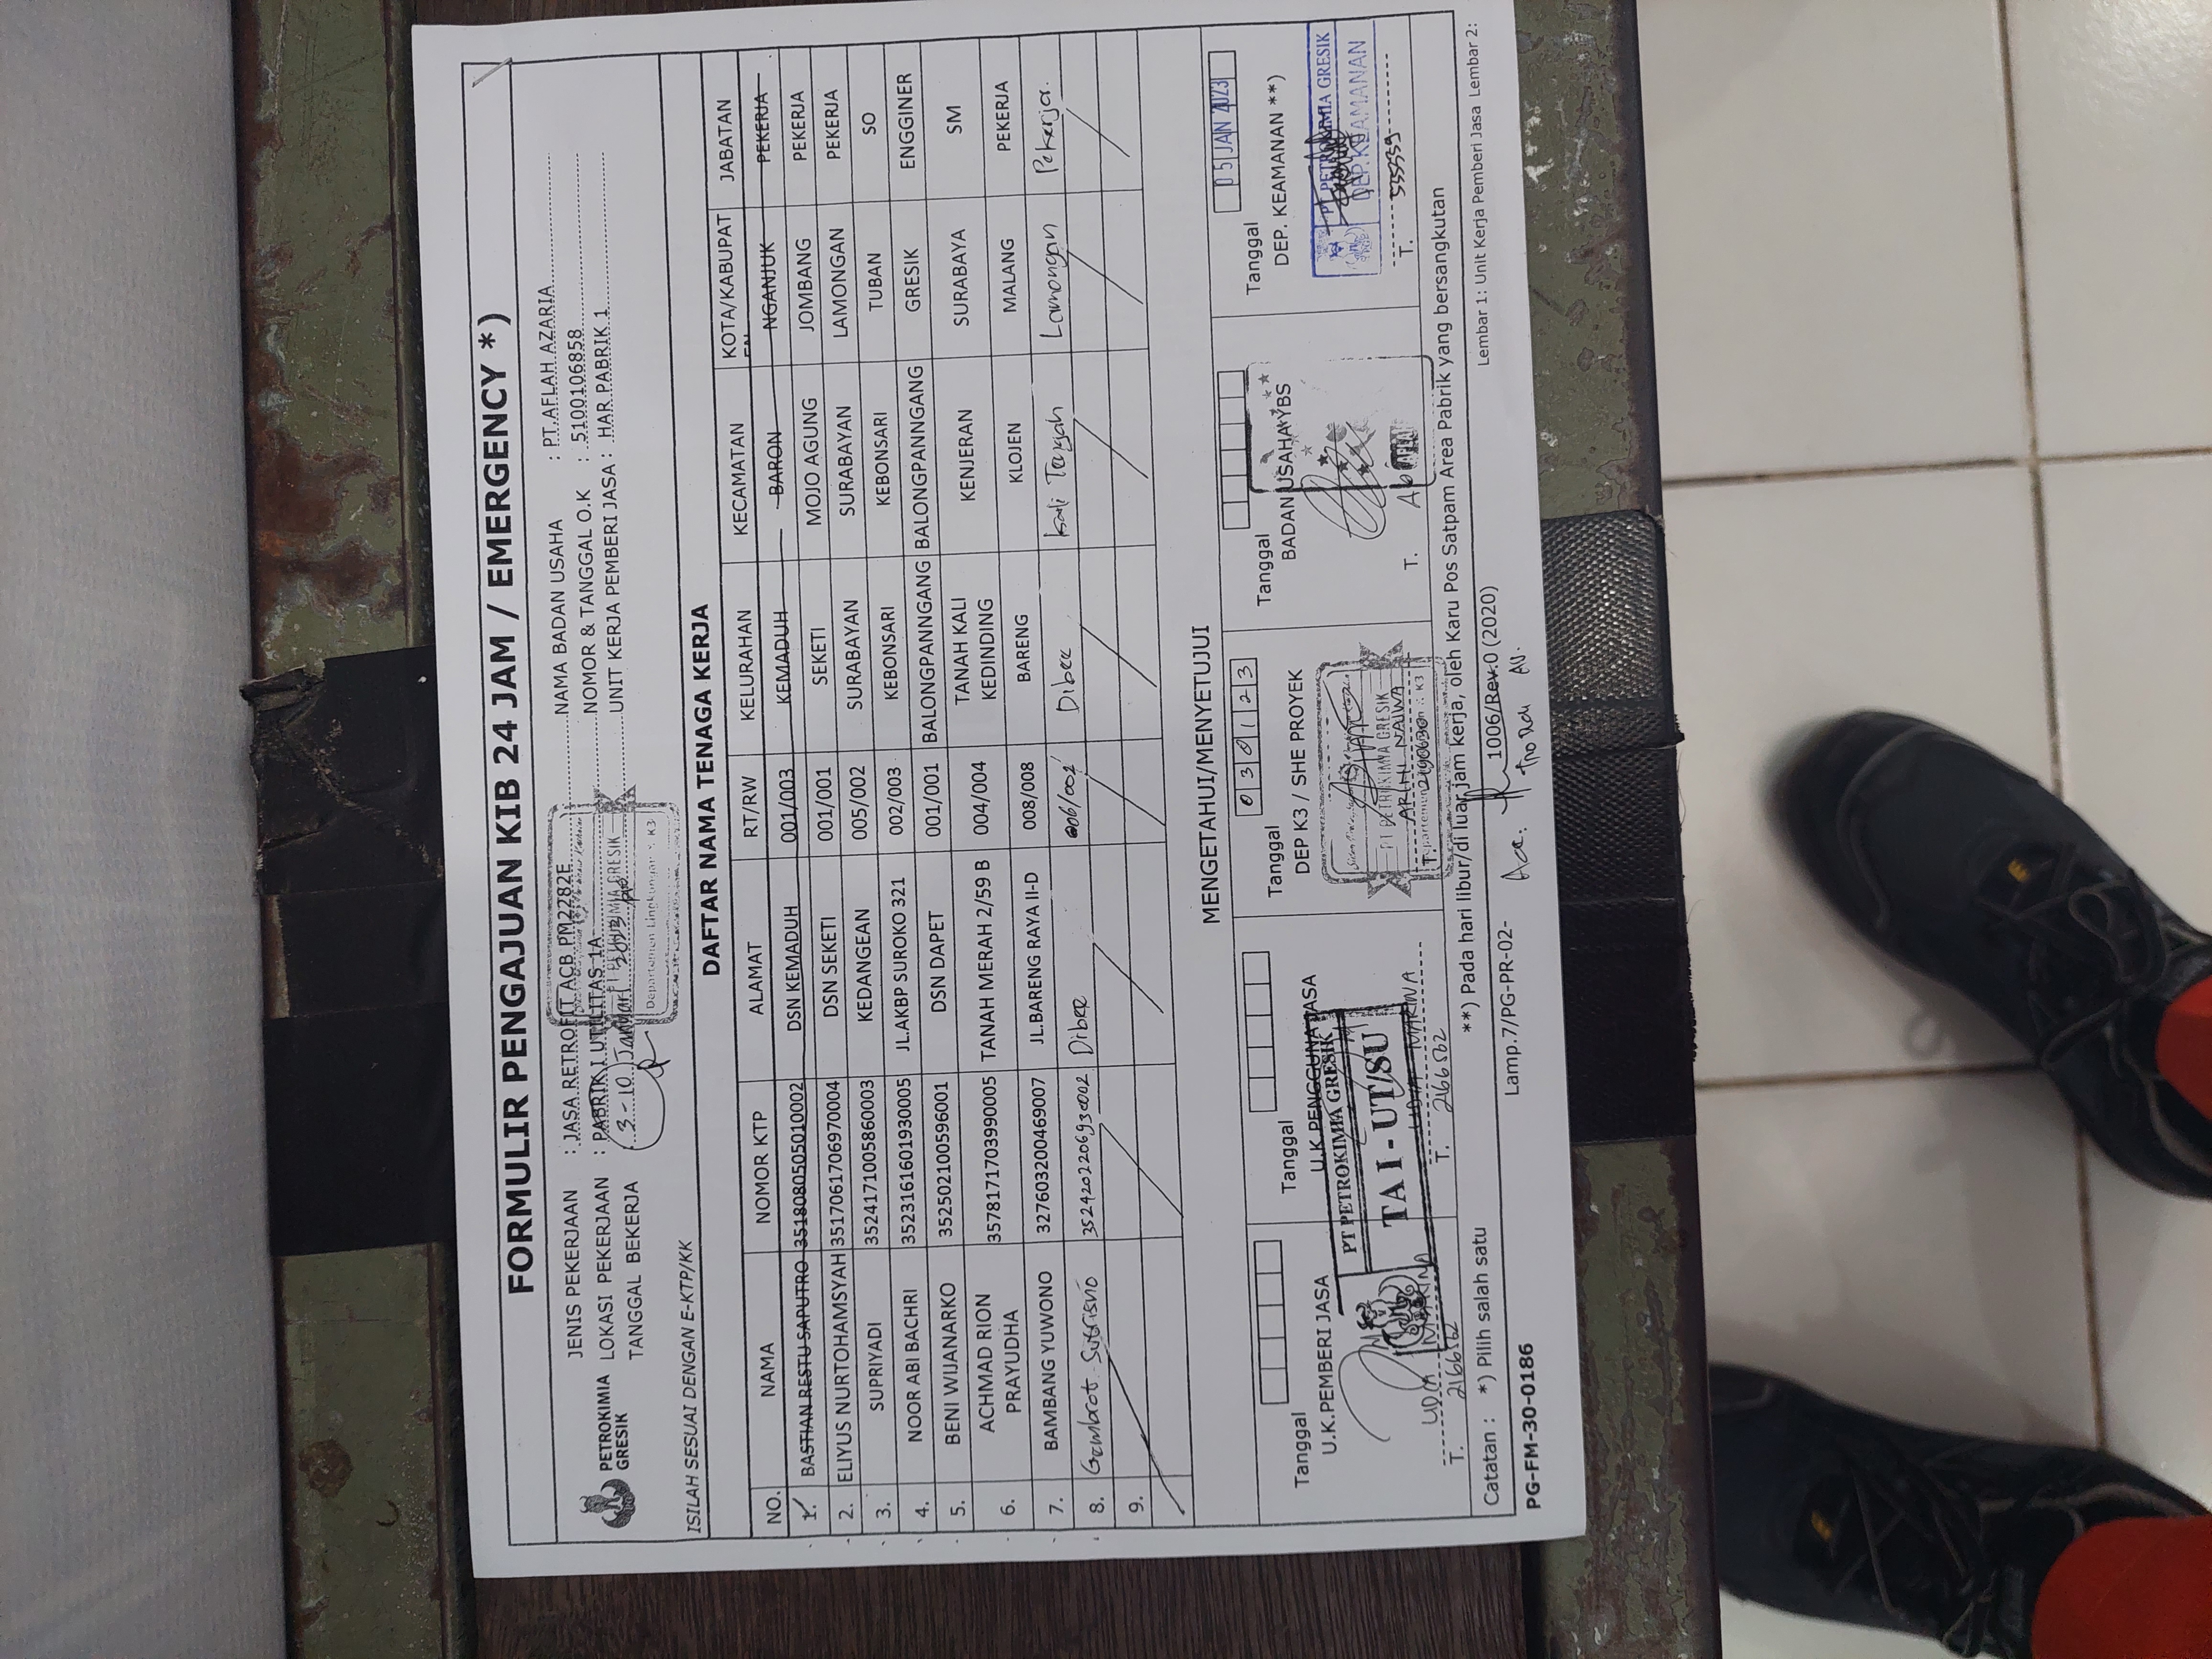 FORMULIR PENGAJUAN KIB 24 JAM / EMERGENCY *)
PETROKIMIA GRESIK
JENIS PEKERJAAN : JASA RETROFIT ACB PM2282E
LOKASI PEKERJAAN : PABRIK I UTILITAS 1A
TANGGAL BEKERJA : 3-10 Januari 2023
NAMA BADAN USAHA : PT.AFLAH AZARIA
NOMOR & TANGGAL O.K : 5100106858
UNIT KERJA PEMBERI JASA : HAR PABRIK 1
PT PETROKIMIA GRESIK
Departemen Lingkungan & K3
ISILAH SESUAI DENGAN E-KTP/KK
DAFTAR NAMA TENAGA KERJA
NO. NAMA NOMOR KTP ALAMAT RT/RW KELURAHAN KECAMATAN KOTA/KABUPATEN JABATAN
1. BASTIAN RESTU SAPUTRO 3518080505010002 DSN KEMADUH 001/003 KEMADUH BARON NGANJUK PEKERJA
2. ELIYUS NURTOHAMSYAH 3517061706970004 DSN SEKETI 001/001 SEKETI MOJO AGUNG JOMBANG PEKERJA
3. SUPRIYADI 3524171005860003 KEDANGEAN 005/002 SURABAYAN SURABAYAN LAMONGAN PEKERJA
4. NOOR ABI BACHRI 3523161601930005 JL.AKBP SUROKO 321 002/003 KEBONSARI KEBONSARI TUBAN SO
5. BENI WIJANARKO 352502100596001 DSN DAPET 001/001 BALONGPANNGANG BALONGPANNGANG GRESIK ENGGINER
6. ACHMAD RION PRAYUDHA 3578171703990005 TANAH MERAH 2/59 B 004/004 TANAH KALI KEDINDING KENJERAN SURABAYA SM
7. BAMBANG YUWONO 327603200469007 JL.BARENG RAYA II-D 008/008 BARENG KLOJEN MALANG PEKERJA
8. Gembrot Sutrisno 3524202206930002 Dibee 006/002 Dibee Kali Tengah Lamongan Pekerja.
9.
MENGETAHUI/MENYETUJUI
Tanggal
U.K.PEMBERI JASA
T. 2166562
Tanggal
U.K.PENGGUNA JASA
PT PETROKIMIA GRESIK
TA I - UT/SU
MARINA
T. 2166562
030123
Tanggal
DEP K3 / SHE PROYEK
PT PETROKIMIA GRESIK
ARINI NAIWA
Departemen Lingkungan & K3
T. 2190630
Tanggal
BADAN USAHA YBS
T.
05 JAN 2023
Tanggal
DEP. KEAMANAN **)
PT PETROKIMIA GRESIK
DEP.KEAMANAN
T. 535359
Catatan : *) Pilih salah satu
**) Pada hari libur/di luar jam kerja, oleh Karu Pos Satpam Area Pabrik yang bersangkutan
PG-FM-30-0186
Lamp.7/PG-PR-02-
1006/Rev.0 (2020)
Acc.
Lembar 1: Unit Kerja Pemberi Jasa Lembar 2: